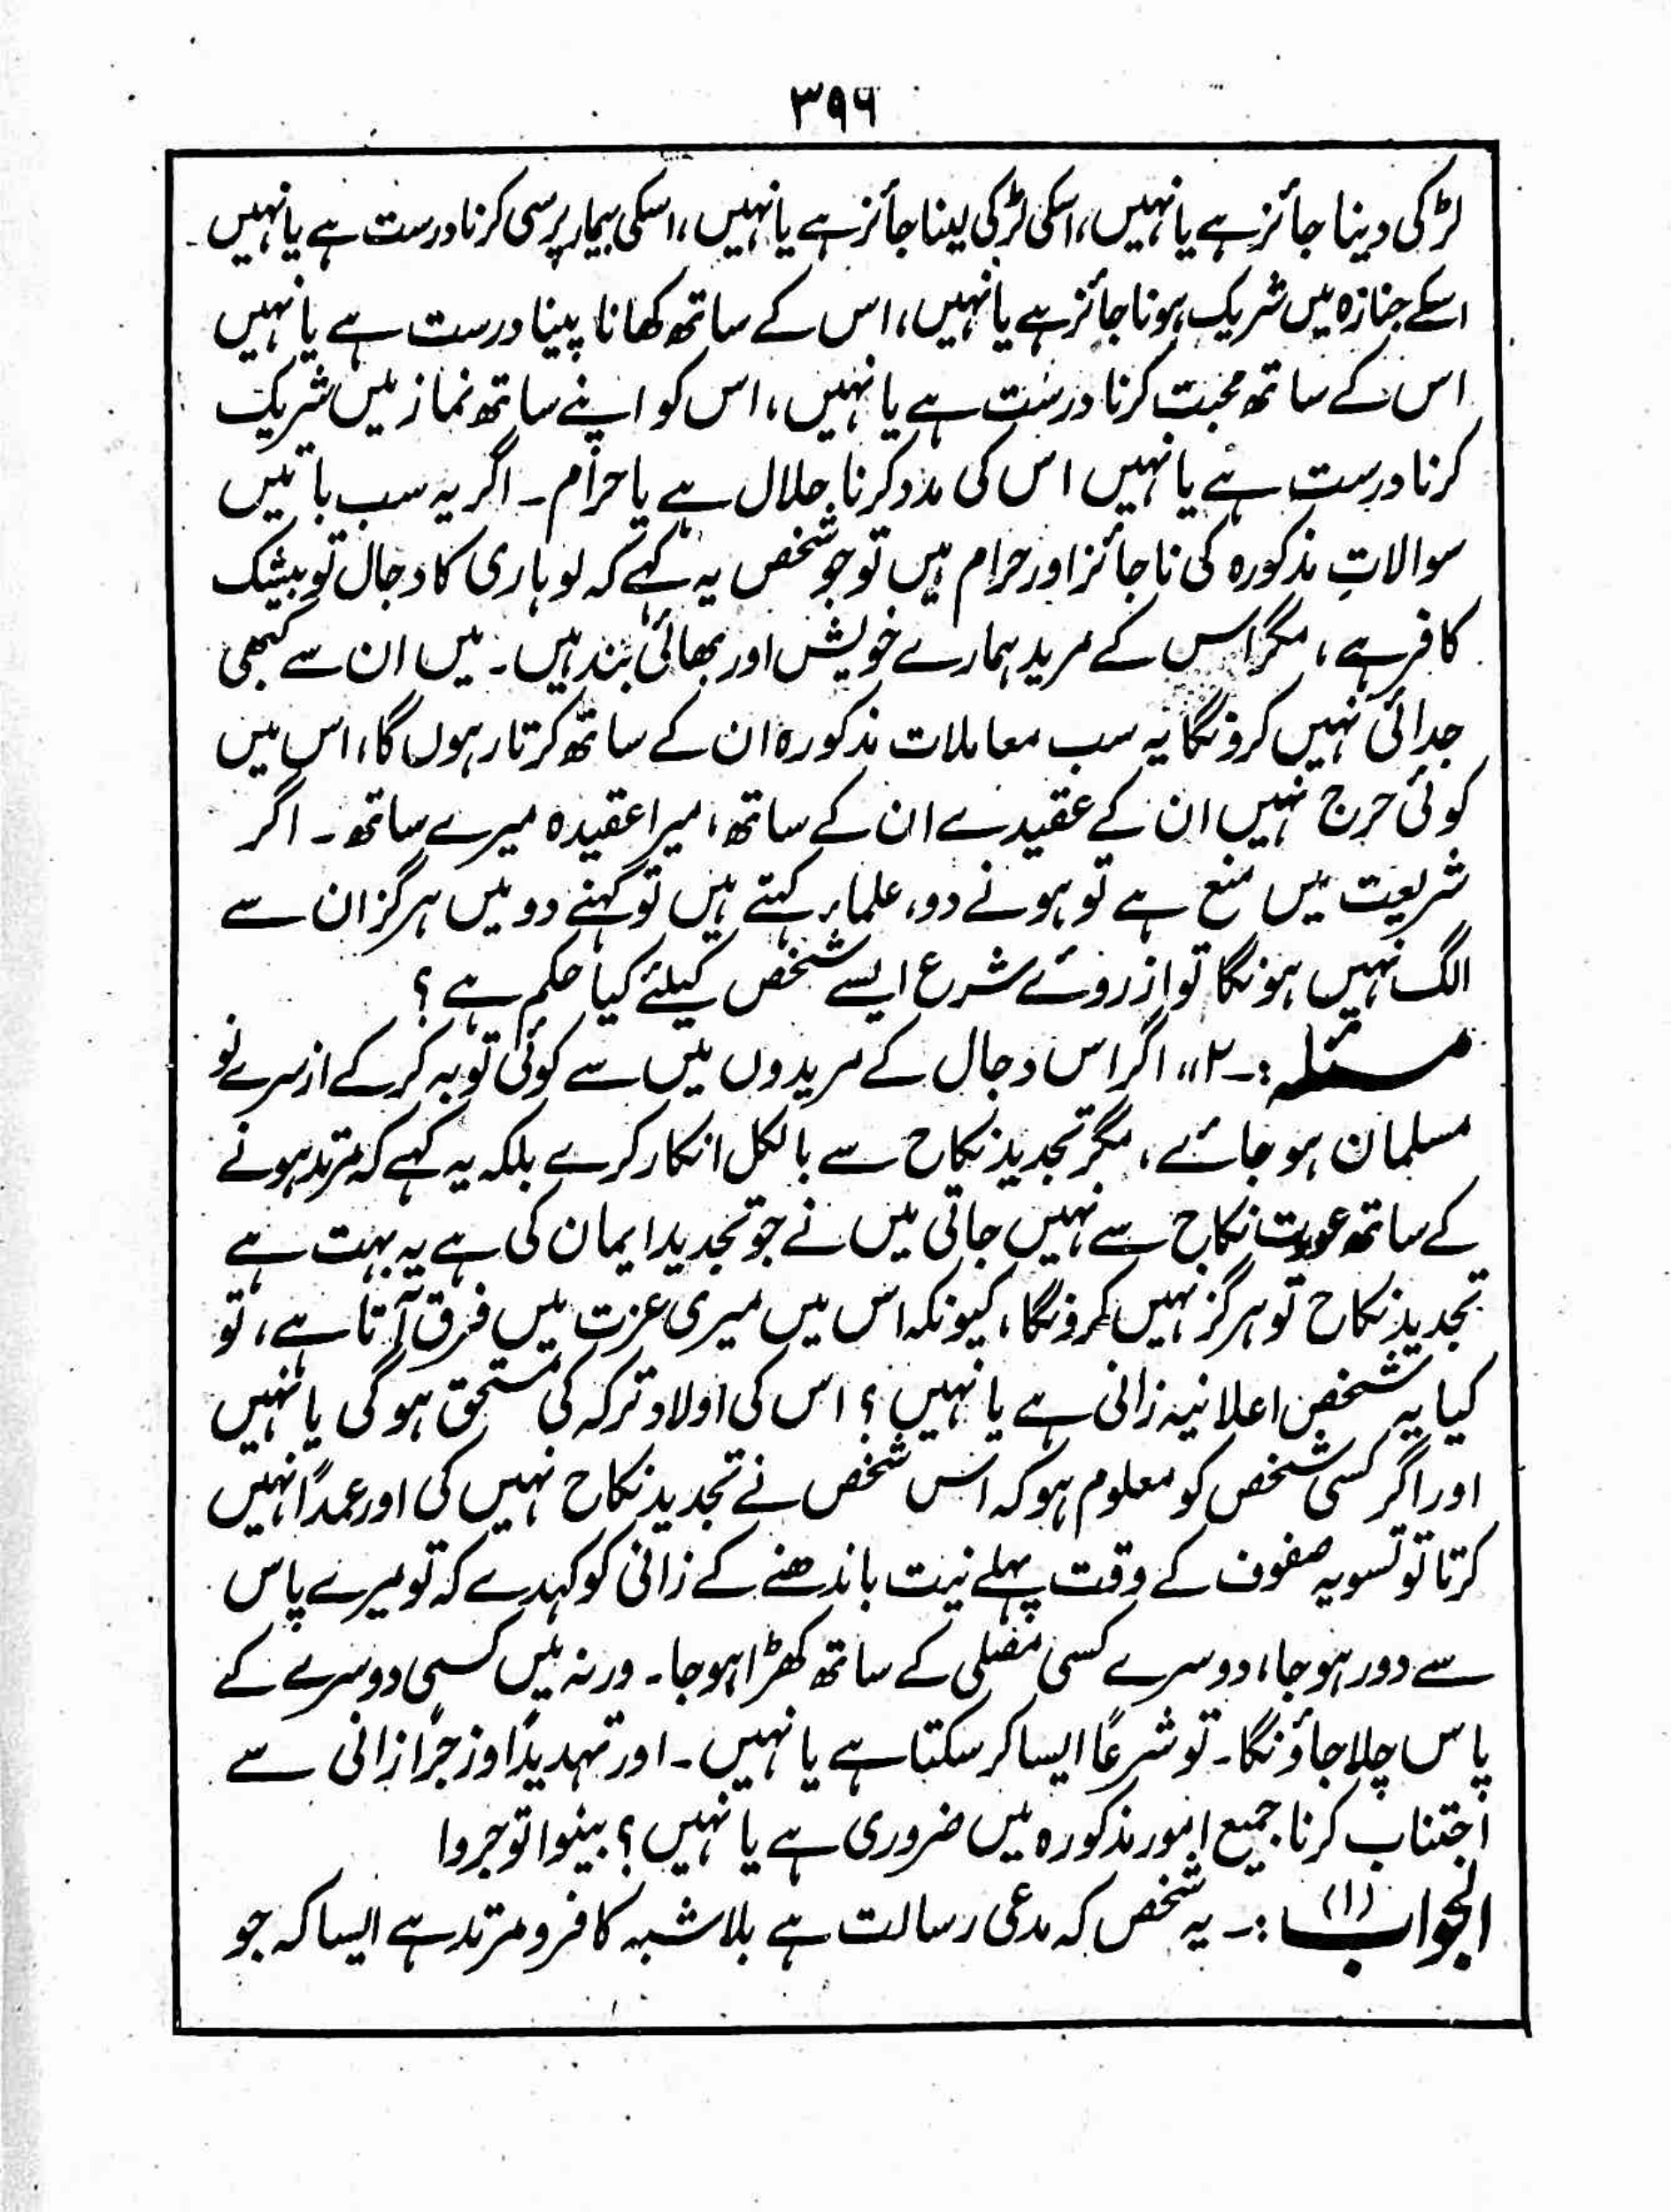 ۳۹۶
لڑکی دینا جائز ہے یا نہیں، اسکی لڑکی لینا جائز ہے یا نہیں، اسکی بیمار پرسی کرنا درست ہے یا نہیں۔
اسکے جنازہ میں شریک ہونا جائز ہے یا نہیں، اس کے ساتھ کھانا پینا درست ہے یا نہیں
اس کے ساتھ محبت کرنا درست ہے یا نہیں، اس کو اپنے ساتھ نماز میں شریک
کرنا درست ہے یا نہیں اس کی مدد کرنا حلال ہے یا حرام۔ اگر یہ سب باتیں
سوالاتِ مذکورہ کی ناجائز اور حرام ہیں تو جو شخص یہ کہے کہ لوہاری کا دجال تو بیشک
کافر ہے، مگر اس کے مرید ہمارے خویش اور بھائی بند ہیں۔ میں ان سے کبھی
جدائی نہیں کرونگا یہ سب معاملات مذکورہ ان کے ساتھ کرتا رہوں گا، اس میں
کوئی حرج نہیں ان کے عقیدے ان کے ساتھ، میرا عقیدہ میرے ساتھ۔ اگر
شریعت میں منع ہے تو ہونے دو، علماء کہتے ہیں تو کہنے دو میں ہرگز ان سے
الگ نہیں ہونگا تو از روئے شرع ایسے شخص کیلئے کیا حکم ہے؟
مسئلہ :۔ ۲،، اگر اس دجال کے مریدوں میں سے کوئی توبہ کر کے از سرے نو
مسلمان ہو جائے، مگر تجدید نکاح سے بالکل انکار کرے بلکہ یہ کہے کہ مرتد ہونے
کے ساتھ عورت نکاح سے نہیں جاتی میں نے جو تجدید ایمان کی ہے یہ بہت ہے
تجدید نکاح تو ہرگز نہیں کرونگا، کیونکہ اس میں میری عزت میں فرق آتا ہے، تو
کیا یہ شخص اعلانیہ زانی ہے یا نہیں؟ اس کی اولاد ترکہ کی مستحق ہوگی یا نہیں
اور اگر کسی شخص کو معلوم ہو کہ اس شخص نے تجدید نکاح نہیں کی اور عمداً نہیں
کرتا تو تسویہ صفوف کے وقت پہلے نیت باندھنے کے زانی کو کہدے کہ تو میرے پاس
سے دور ہو جا، دوسرے کسی مصلی کے ساتھ کھڑا ہو جا۔ ورنہ میں کسی دوسرے کے
پاس چلا جاؤنگا۔ تو شرعاً ایسا کر سکتا ہے یا نہیں۔ اور تہدیداً و زجراً زانی سے
اجتناب کرنا جمیع امور مذکورہ میں ضروری ہے یا نہیں؟ بینوا توجروا
الجواب (۱) :۔ یہ شخص کہ مدعی رسالت ہے بلا شبہ کافر و مرتد ہے ایسا کہ جو